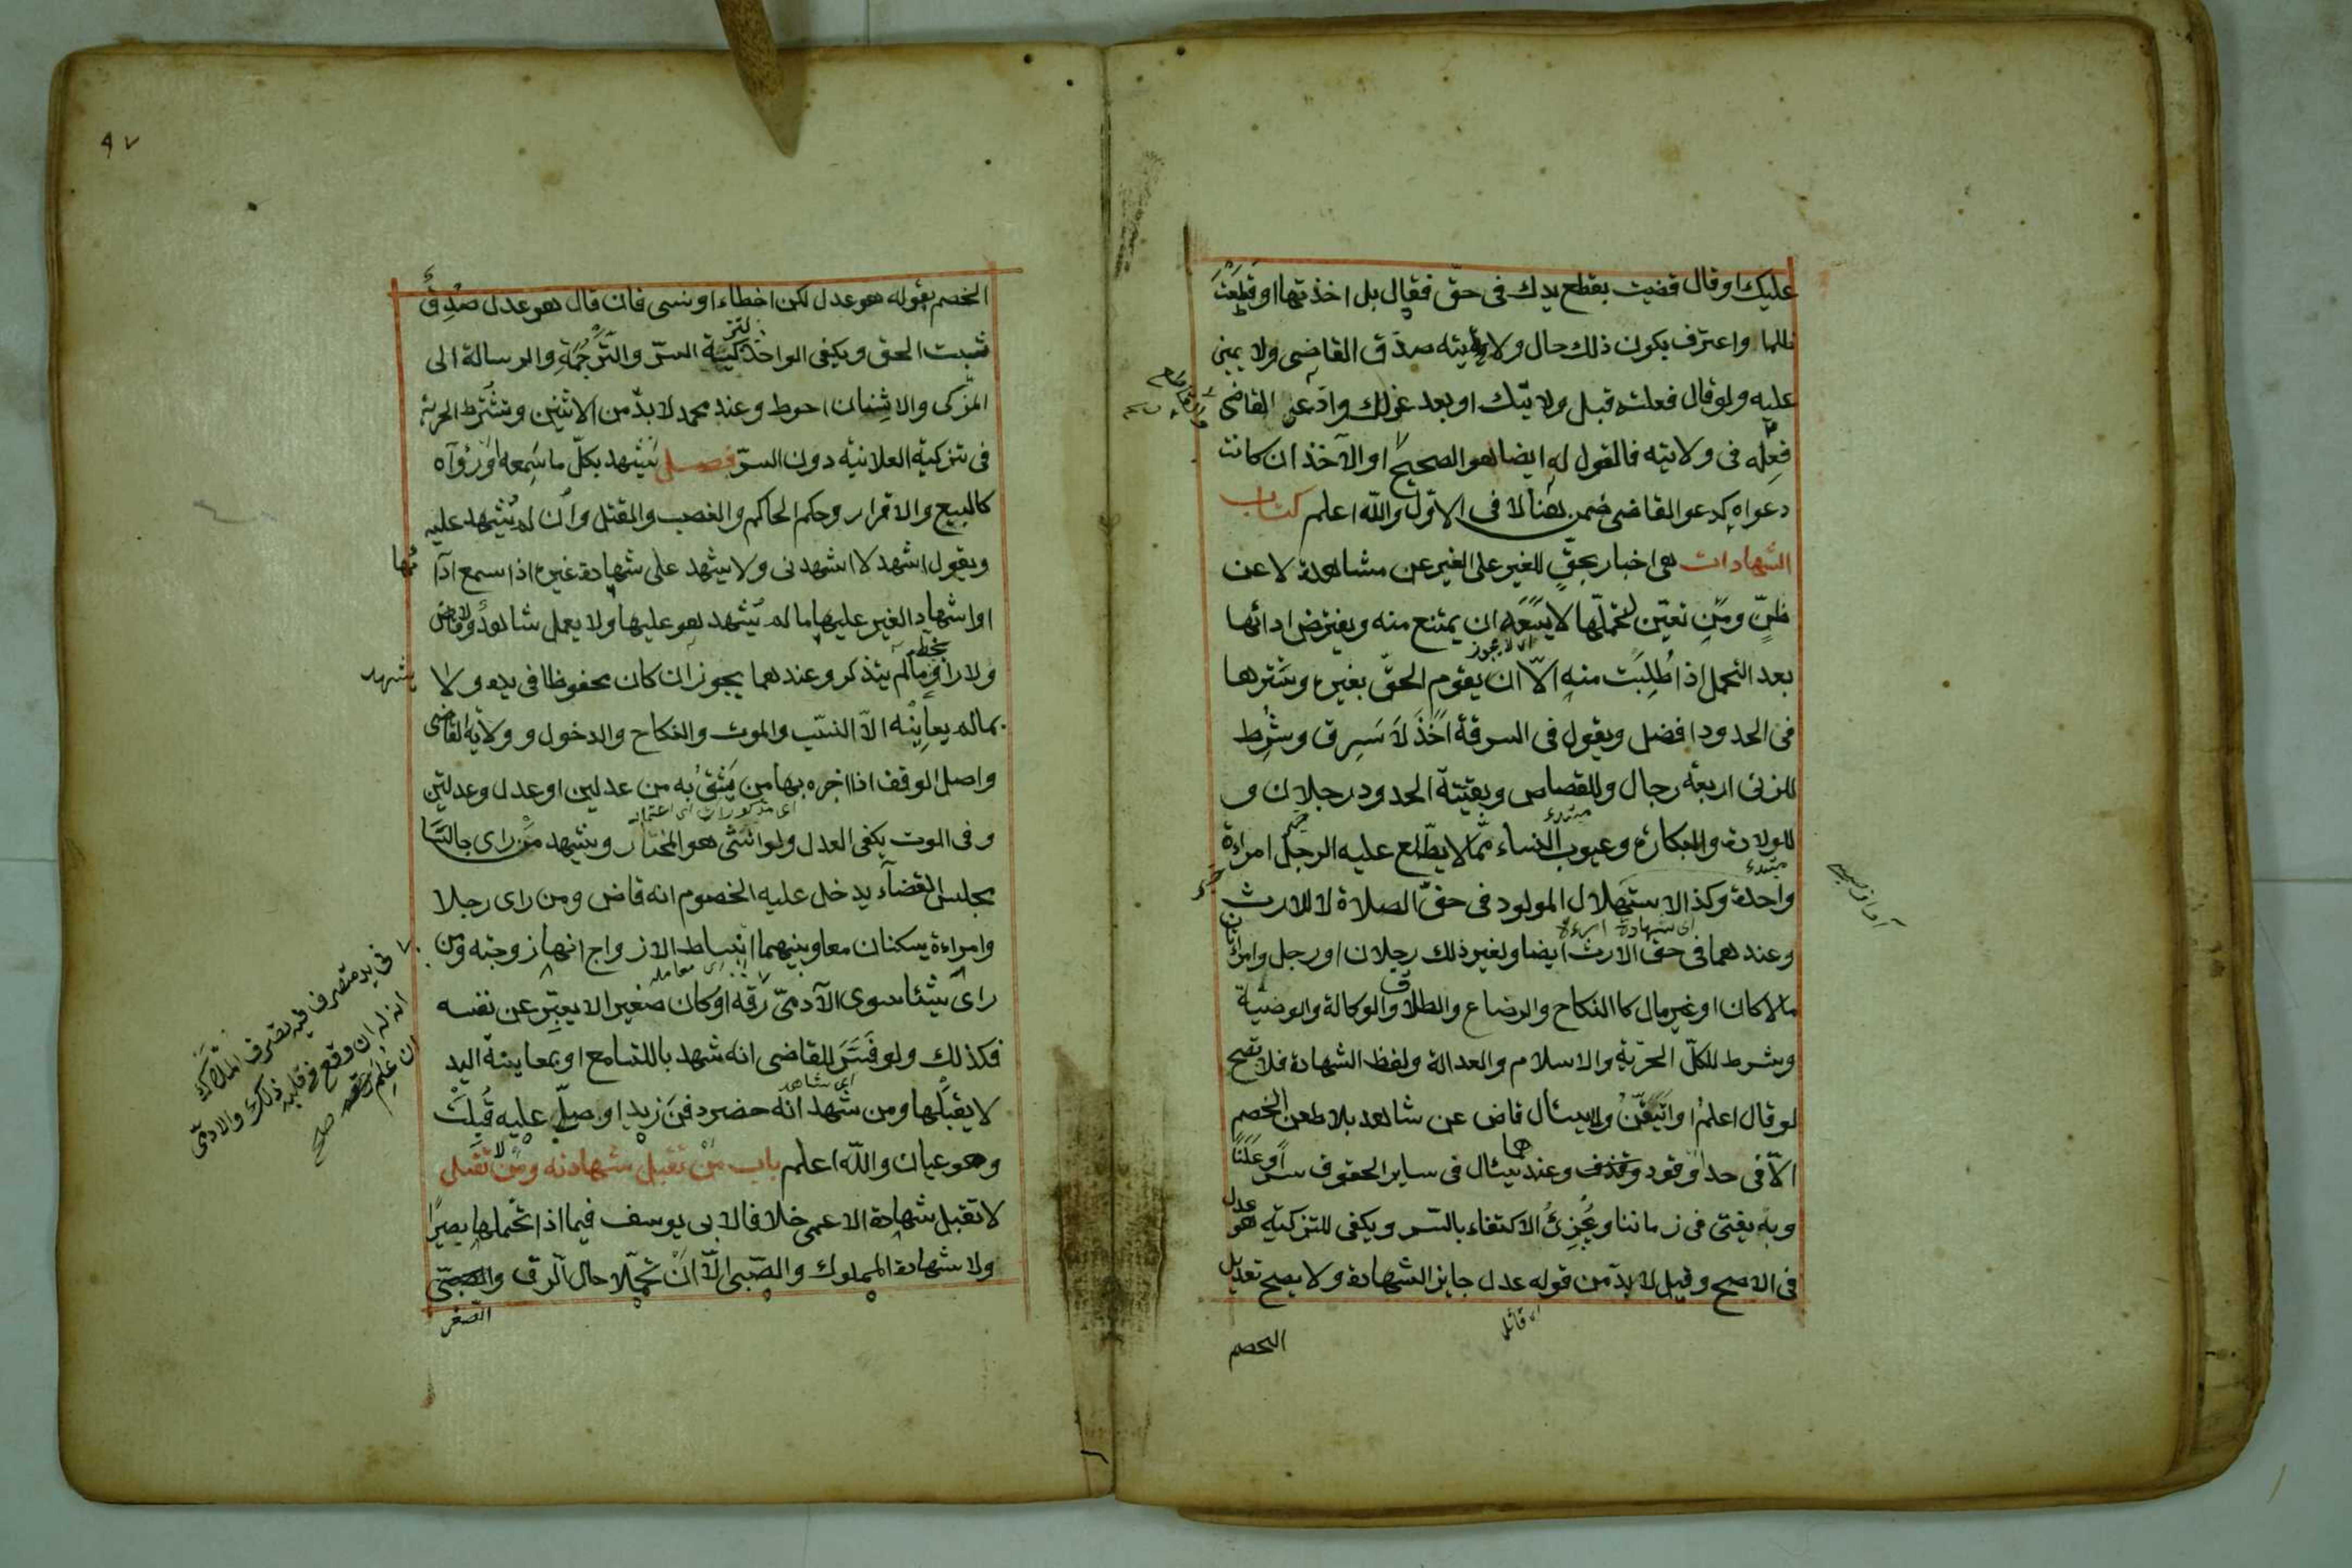 عليك او قال قضيت بقطع يدك فى حقّ فقال بل اخذتها او قطعت
ظلما واعترف بكون ذلك حال ولايته صدّق القاضى ولا يمين
عليه ولو قال فعلته قبل ولايتك او بعد عزلك وادّعى القاضى
فعله فى ولايته فالقول له ايضا هو الصحيح او الآخذ ان كانت
دعواه كدعو القاضى ضمن هنا لا فى الاوّل والله اعلم كتاب
الشهادات هى اخبار بحقٍّ للغير على الغير عن مشاهدة لا عن
ظنٍّ ومن تعيّن لتحملّها لا يسَعَه ان يمتنع منه ويفترض ادائها
بعد التحمل اذا طُلِبَت منه الاّ ان يقوم الحقّ بغيره وسترها
اى لا يجوز
فى الحدود افضل ويقول فى السرقة اَخَذَ لاَ سَرِق وشُرِط
للزنى اربعة رجال وللقصاص وبقيّة الحدود رجلان و
للولادة والبكارة وعيوب النساء ممّا لا يطّلع عليه الرجل امراءة
واحدة وكذا الاستهلال المولود فى حقّ الصلاة لا للارث
وعندهما فى حق الارث ايضا ولغير ذلك رجلان او رجل وامراتان
مالا كان او غير مال كا النكاح والرضاع والطلاق والوكالة والوصيّة
وشرط للكلّ الحرّية والاسلام والعدالة ولفظ الشهادة فلا تصح
لو قال اعلم او اتيقّن ولا يسئال قاض عن شاهد بلا طعن الخصم
الاّ فى حد او قود وعندهما يسئال فى ساير الحقوق سرّا وعَلَنًا
وبه يفتى فى زماننا ويُجزِئُ الاكتفاء بالسّر ويكفى للتزكيّه هو عدل
فى الاصح وقيل لا بدّ من قوله عدل جايز الشهادة ولا يصح تعديل
الخصم
٩٧
الخصم بقوله هو عدل لكن اخطاء او نسى فان قال هو عدل صُدِقَ
ثبت الحق ويكفى الواحد لتزكيّة السرّ والتَّرجُمَةِ والرسالة الى
المزّكى والاثِنان احوط وعند محمد لا بدّ من الاثنين وتشترط الحرية
فى تزكية العلانيّة دون السرّ فصل يَشهد بكلّ ما سَمِعه او رَوآه
كالبيع والاقرار وحكم الحاكم والغصب والقتل وأن لم يُشهد عليه
ويقول اشهد لا اشهدنى ولا يشهد على شهادة غيره اذا سمع ادآئها
او اشهاد الغير عليها ما لم يُشهد هو عليها ولا يعمل شاهد ولا قاض
ولا راوٍ بخطّه ما لم يتذكر وعندهما يجوز ان كان محفوظا فى يده ولا يشهد
بما لم يعاينه الاّ النسّب والموت والنكاح والدخول وولاية القاضى
واصل الوقف اذا اخبره بها من يَثقُ به من عدلين او عدل وعدلتين
وفى الموت يكفى العدل ولو انثى هو المختار ويشهد مَن راى جالسًا
مجلس القضآء يدخل عليه الخصوم انه قاض ومن راى رجلا
وامراءة يسكنان معا وبينهما انبساط الازواج انها زوجته ومن
راى شيئا سوى الآدمىّ فى يد متصرف فيه تصرف الملاّك
انه له ان وقع فى قلبه ذلك والادمّى
ان عُلِمَ رقه صح
رقّه او كان صغيرا لا يعبّر عن نفسه
فكذلك ولو فَسَّرَ للقاضى انه شهد بالتسامع او بمعاينة اليد
لا يقبَلها ومن شهد انه حضر دفنَ زيدٍ او صلّى عليه قُبِلتْ
وهو عيان والله اعلم باب مَنْ تقبل شهادته ومَن لا تقبل
لا تقبل شهادة الاعمى خلافا لابى يوسف فيما اذا تحملها بصيرًا
ولا شهادة المملوك والصّبى الاّ اَنْ تحمّلا حال الرق و
الصّغر